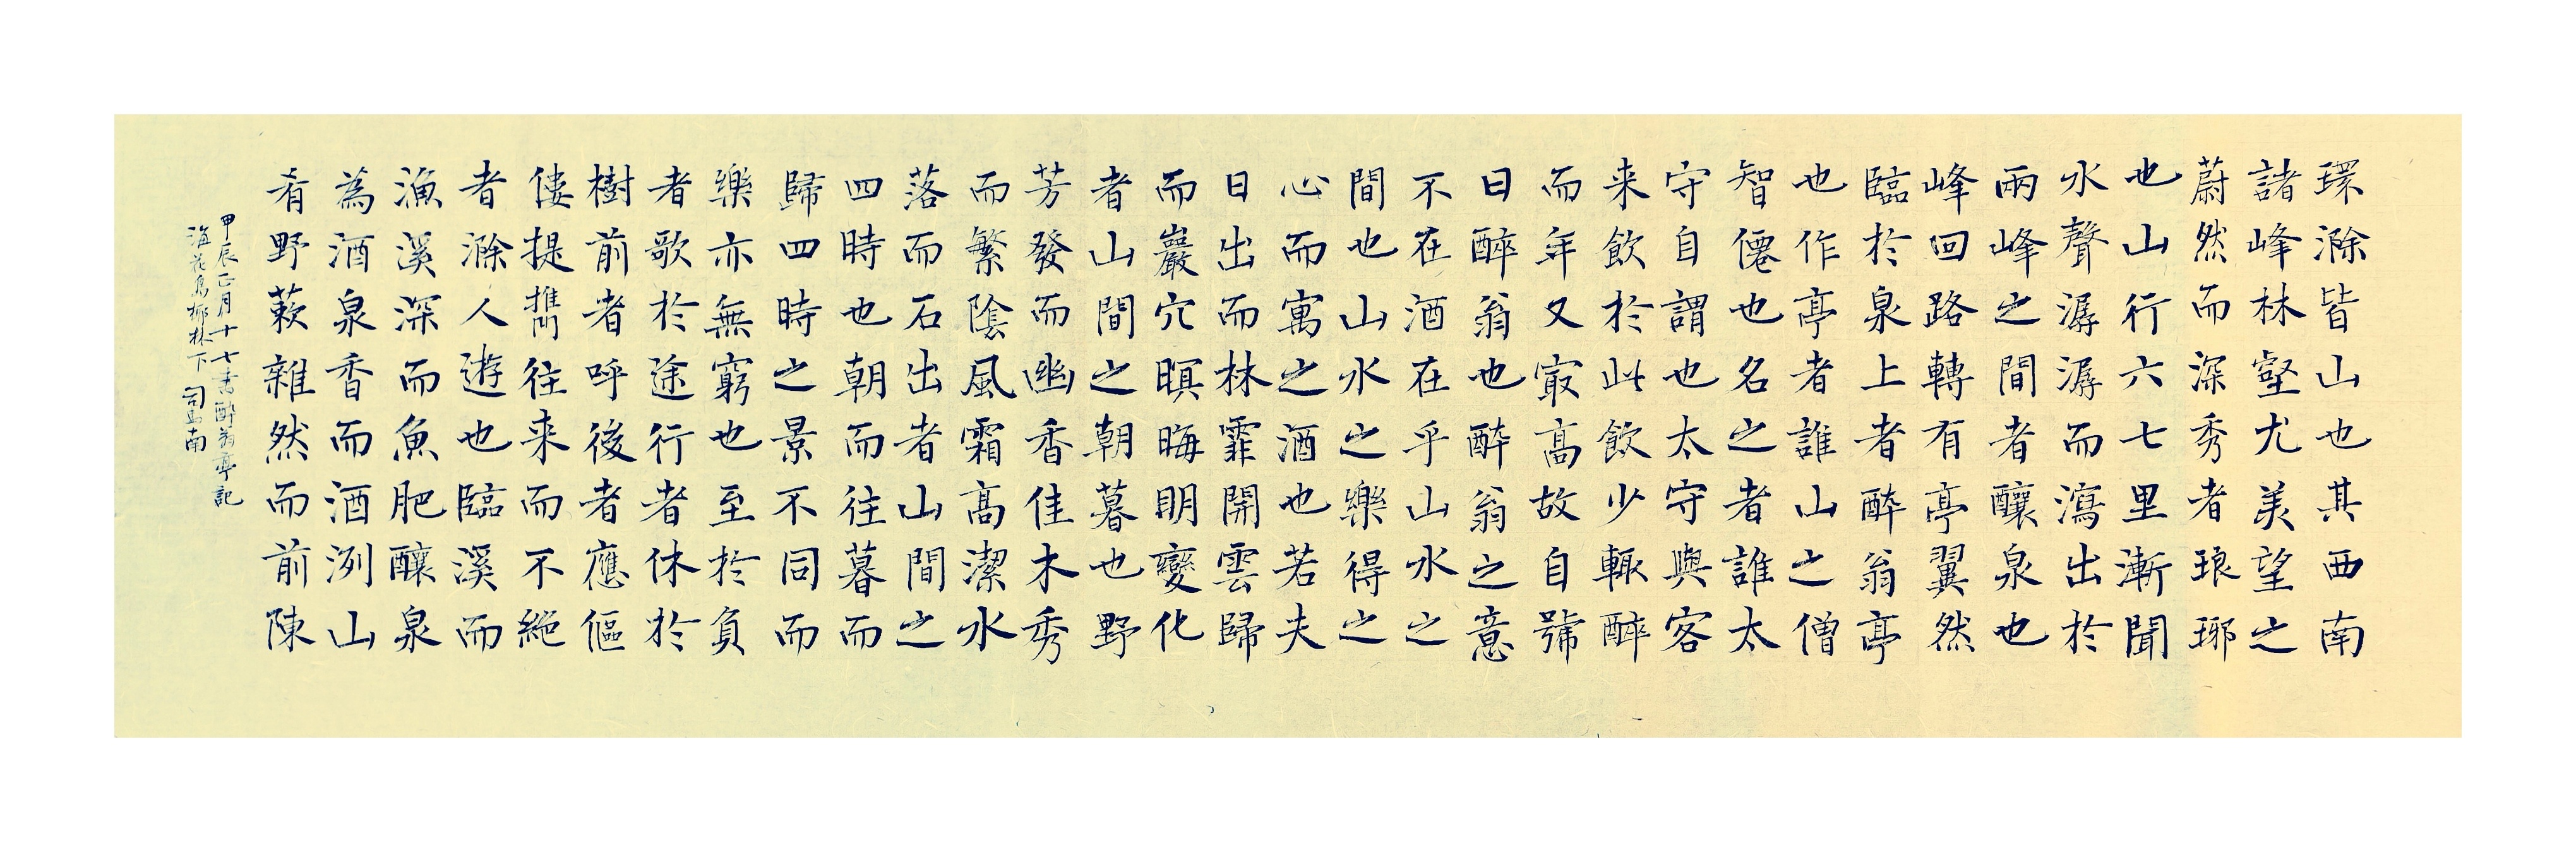 環滁皆山也其西南
諸峰林壑尤美望之
蔚然而深秀者琅琊
也山行六七里漸聞
水聲潺潺而瀉出於
兩峰之間者釀泉也
峰回路轉有亭翼然
臨於泉上者醉翁亭
也作亭者誰山之僧
智僊也名之者誰太
守自謂也太守與客
来飲於此飲少輒醉
而年又最髙故自號
曰醉翁也醉翁之意
不在酒在乎山水之
間也山水之樂得之
心而寓之酒也若夫
日出而林霏開雲歸
而巖穴暝晦明變化
者山間之朝暮也野
芳發而幽香佳木秀
而繁陰風霜髙潔水
落而石出者山間之
四時也朝而往暮而
歸四時之景不同而
樂亦無窮也至於負
者歌於途行者休於
樹前者呼後者應傴
僂提攜往来而不絶
者滁人遊也臨溪而
漁溪深而魚肥釀泉
為酒泉香而酒洌山
肴野蔌雜然而前陳
甲辰正月十七書醉翁亭記
花鳥柳林下 司馬南